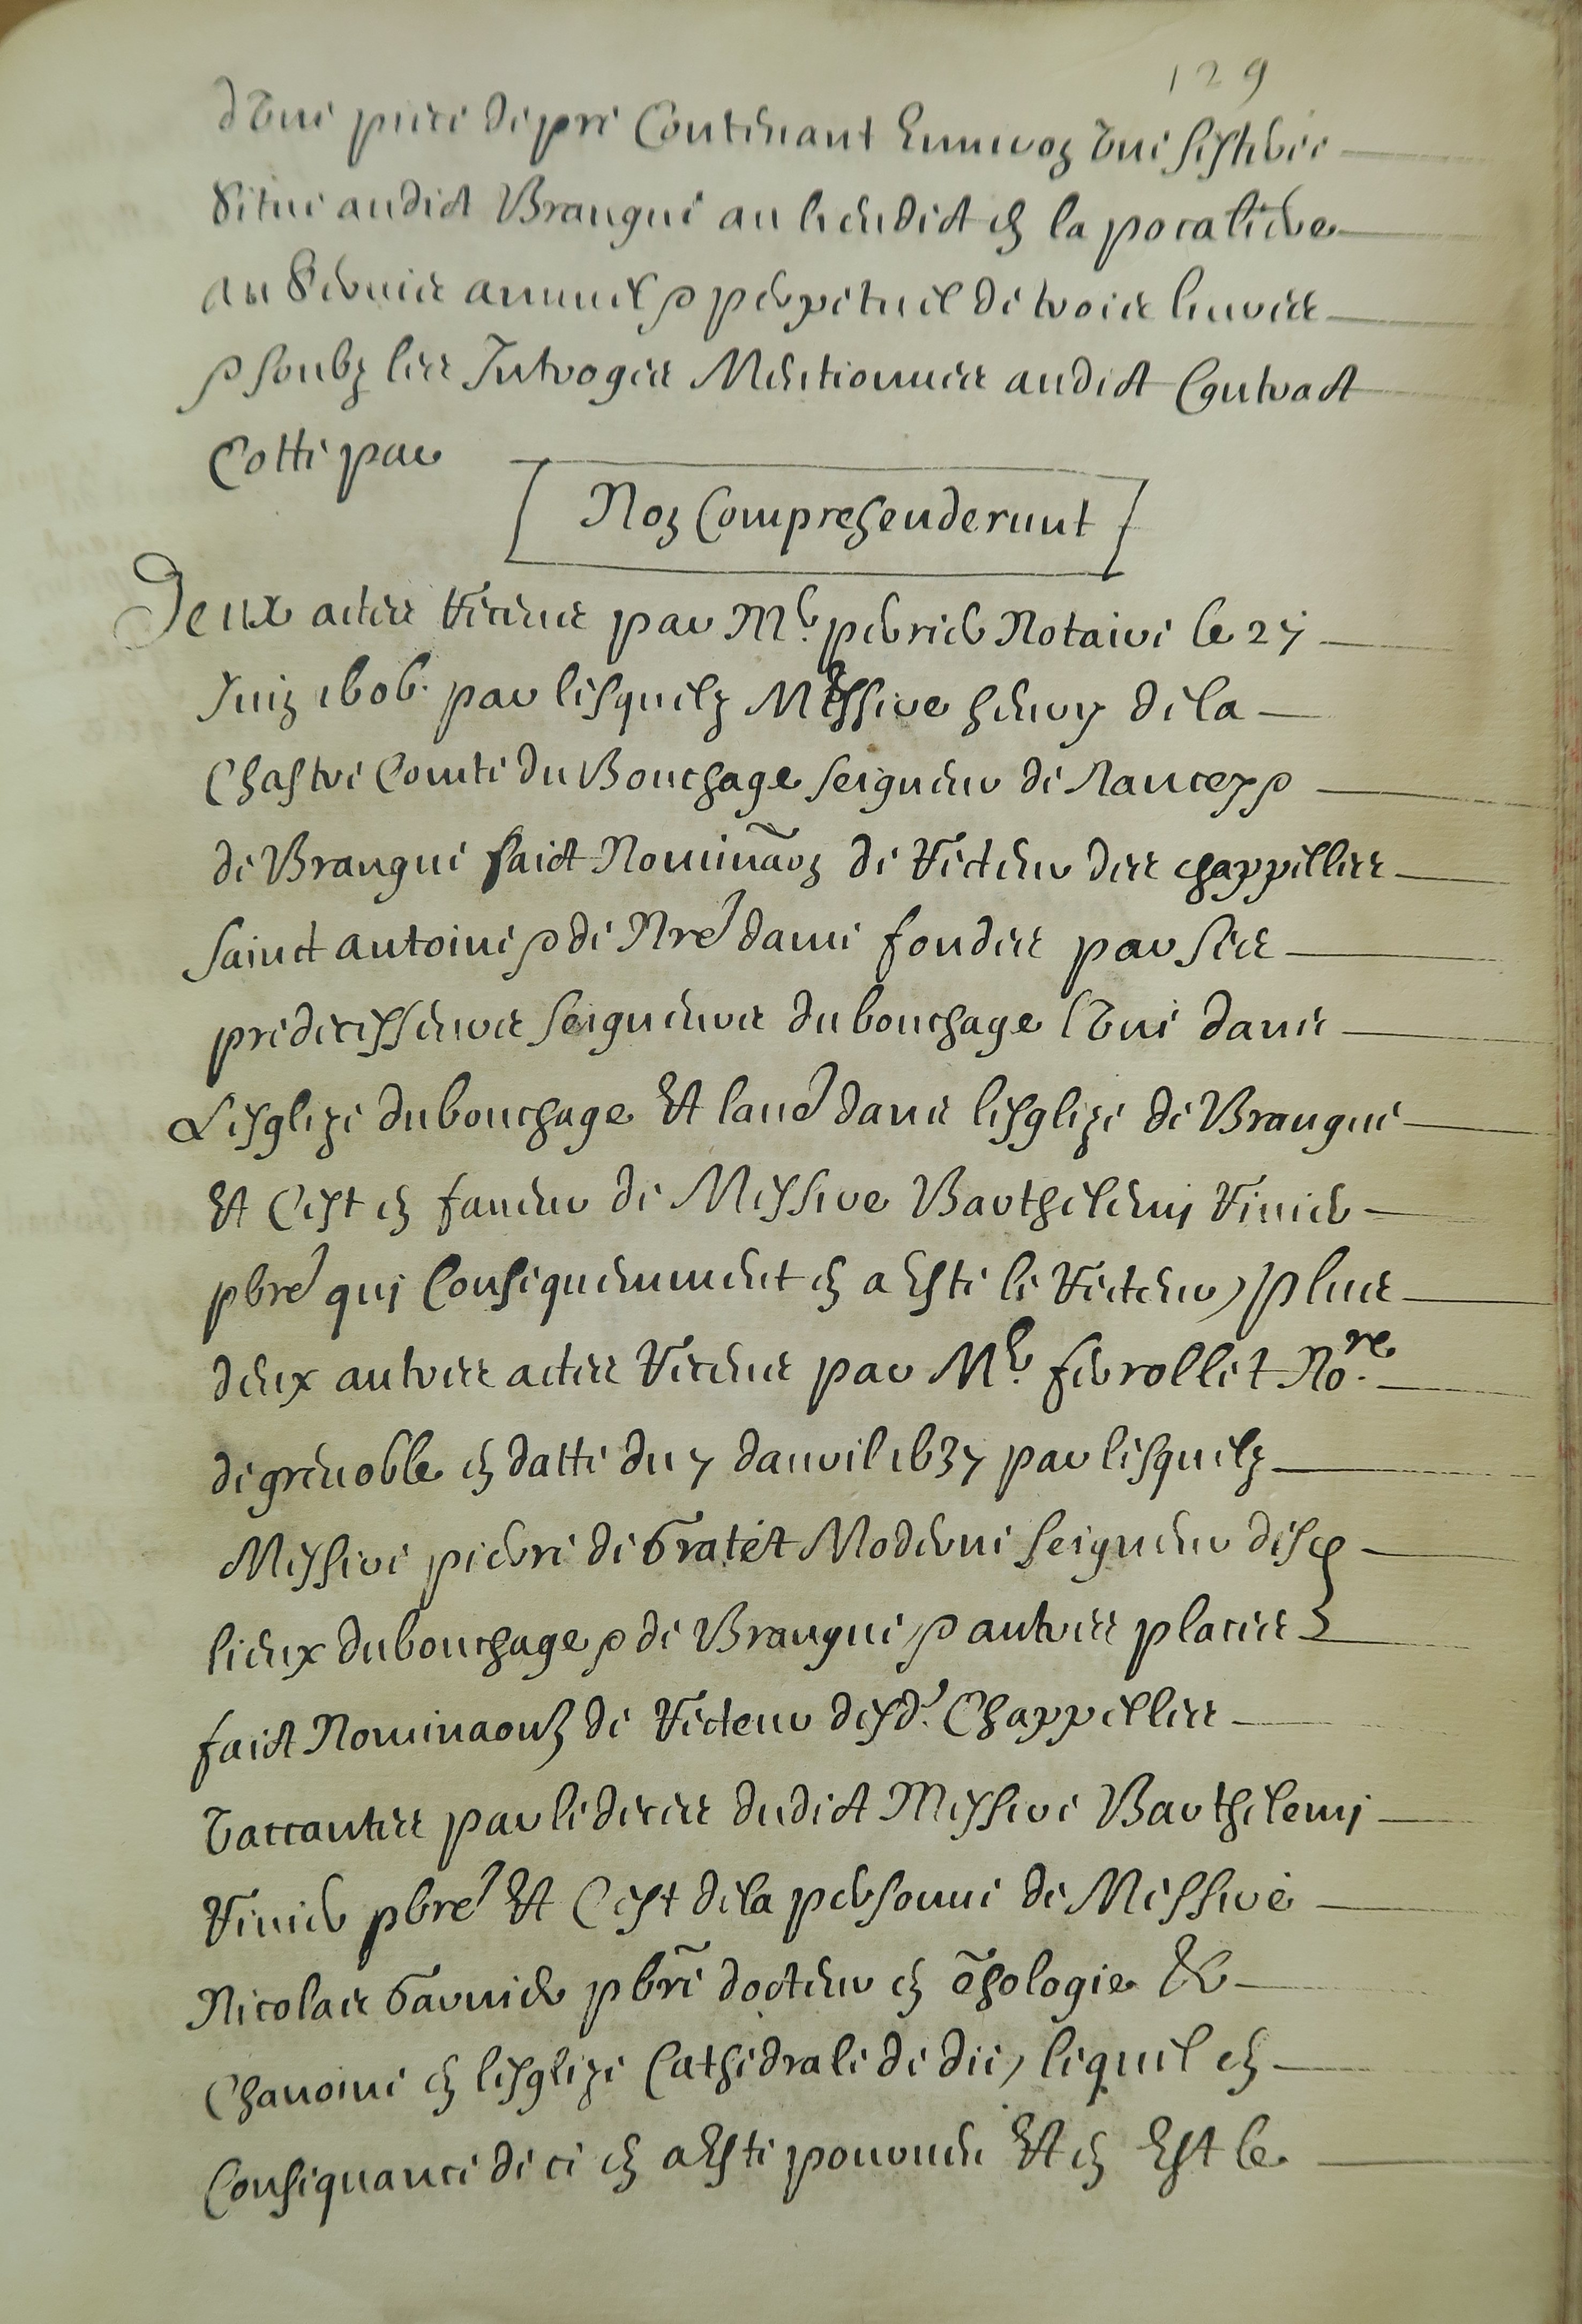 129
d'une piece de pré Contenant Environ une sesteree
Situe audict Brangue au lieudict en la pocatiere
au Service annuel & perpetuel de trois livres
& soubz les Intrages Mentionnes audict Contract
Cotté par
Non Comprehenderunt
Deux actes Receus par Mr. perrier Notaire le 27
Juin 1606. par lesquelz Messire henry de la
Chastre Comte du Bouchage Seigneur de Nancey &
de Brangue faict Nominaon de Recteur des chappelles
Sainct antoine & de Nre dame fondees par Ses
predecesseurs Seigneurs du bouchage l'une dans
L'esglize du bouchage Et laue dans lesglize de Brangue
Et C'est en faveur de Messire Barthelemy Vivier
pbre quy Consequemment en a Esté le Recteur, plus
deux autres actes Receus par Mr. ferrollet Nore.
de grenoble en datte du 7 d'avril 1637 par lesquelz
Messire pierre de Gratet Moderne Seigneur desd
lieux du bouchage & de Brangue, & autres places
faict Nominaoun de Recteur desd. Chappelles
Vaccantes par le deces dudict Messire Barthelemy
Vivier pbre Et C'est de la personne de Messire
Nicolas Garnier pbre docteur en theologie &
Chanoine en lesglize Cathedrale de die, lequel en
Consequance de ce en a Esté pourveu Et en Est le